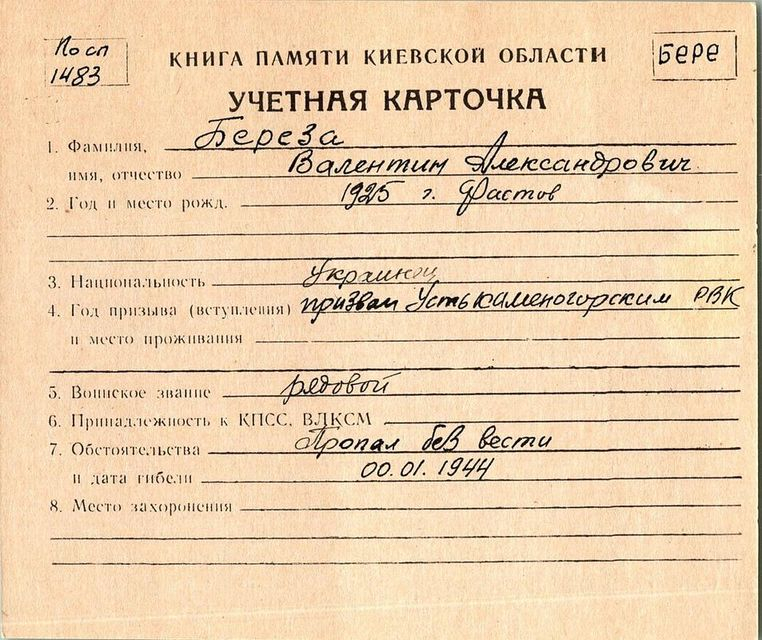 Посл
1483
КНИГА ПАМЯТИ КИЕВСКОЙ ОБЛАСТИ
Бере
УЧЕТНАЯ КАРТОЧКА
1. Фамилия, Береза
имя, отчество Валентин Александрович
2. Год и место рожд. 1925 г. Фастов
3. Национальность украинец
4. Год призыва (вступления) призван Устькаменогорским РВК
и место проживания
5. Воинское звание рядовой
6. Принадлежность к КПСС, ВЛКСМ
7. Обстоятельства Пропал без вести
и дата гибели 00.01.1944
8. Место захоронения